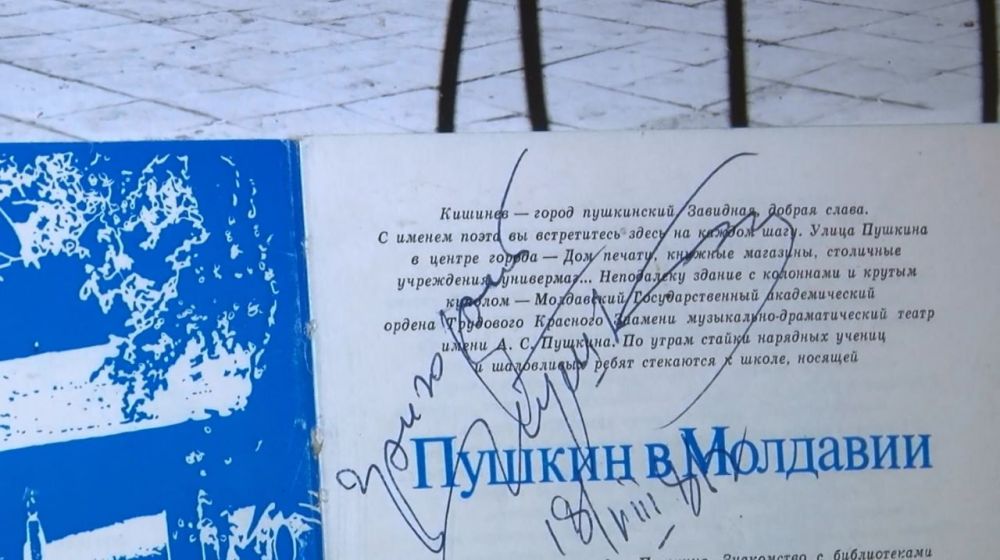 Кишинев — город пушкинский. Завидная, добрая слава.
С именем поэта вы встретитесь здесь на каждом шагу. Улица Пушкина
в центре города — Дом печати, книжные магазины, столичные
учреждения, универмаг... Неподалеку здание с колоннами и крутым
куполом — Молдавский Государственный академический
ордена Трудового Красного Знамени музыкально-драматический театр
имени А. С. Пушкина. По утрам стайки нарядных учениц
и шаловливых ребят стекаются к школе, носящей
Пушкин в Молдавии
18/VIII
Знакомство с библиотеками